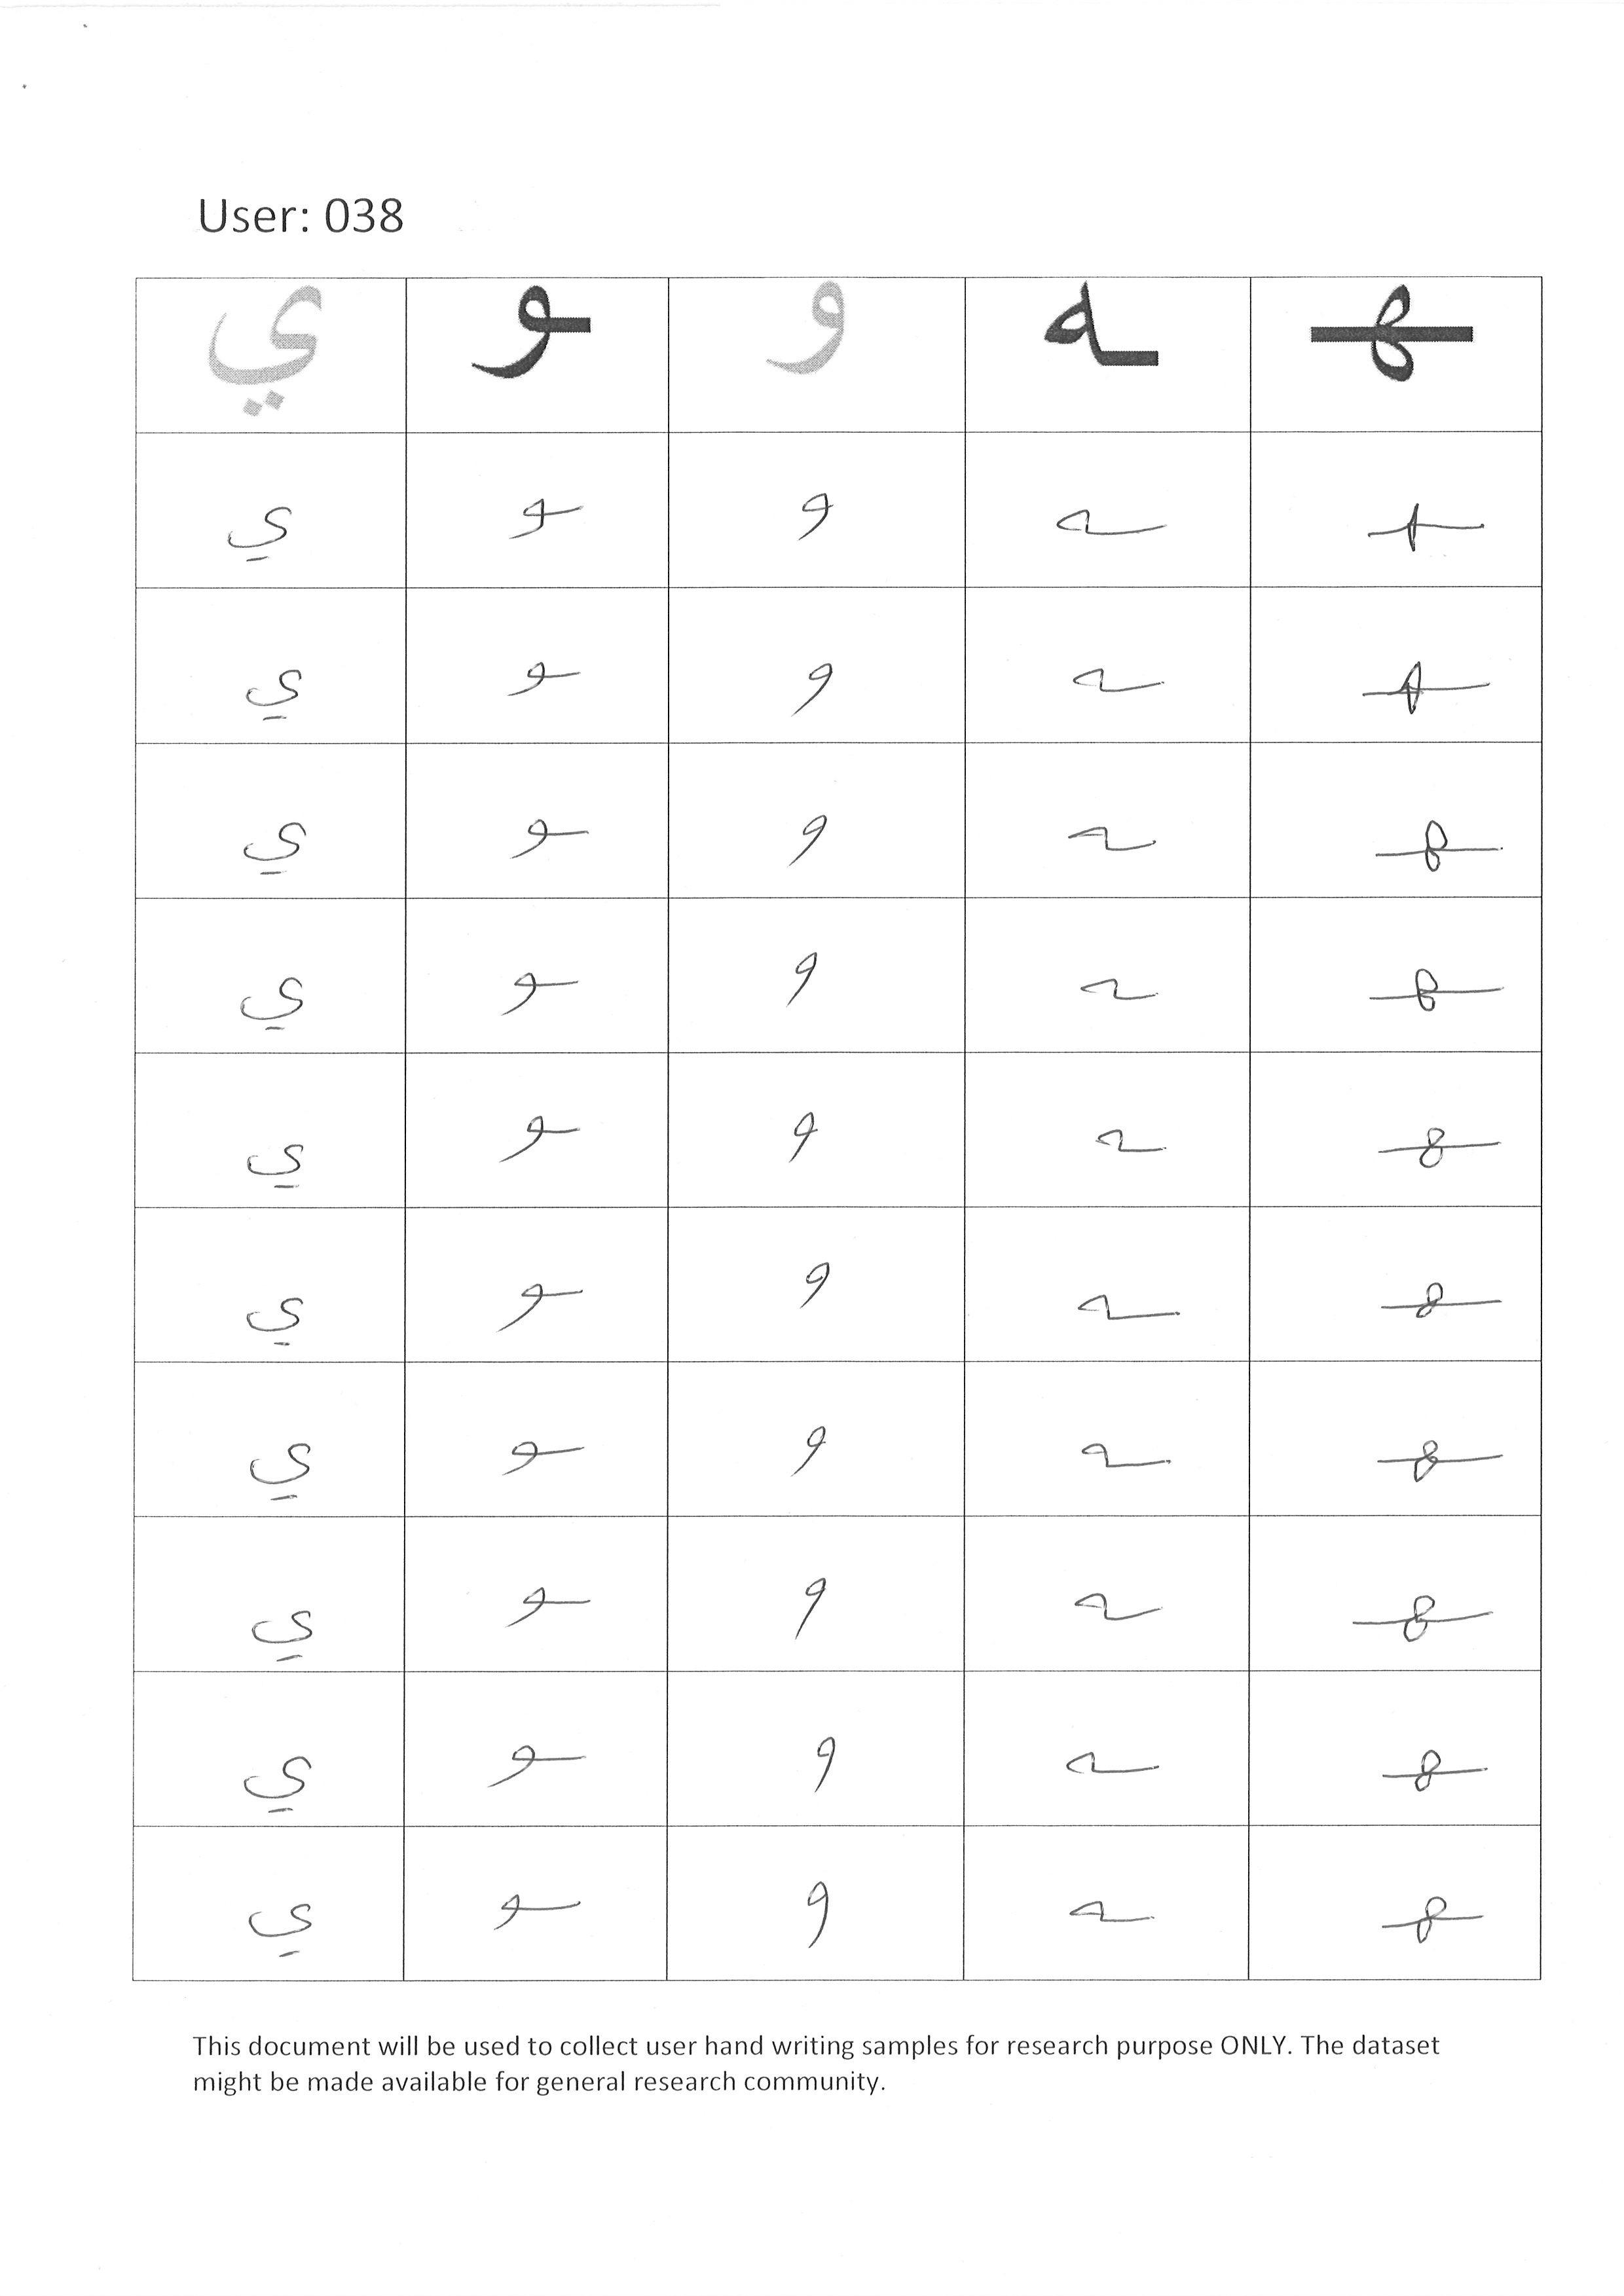 User: 038
ي ـو و ـه ـهـ
ي ـو و ـه ـهـ
ي ـو و ـه ـهـ
ي ـو و ـه ـهـ
ي ـو و ـه ـهـ
ي ـو و ـه ـهـ
ي ـو و ـه ـهـ
ي ـو و ـه ـهـ
ي ـو و ـه ـهـ
ي ـو و ـه ـهـ
ي ـو و ـه ـهـ
This document will be used to collect user hand writing samples for research purpose ONLY. The dataset
might be made available for general research community.